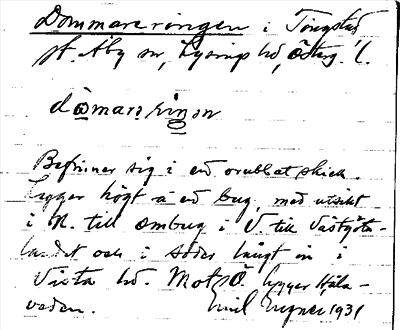 Dommareringen i Tingstad
st. Åby sn, Lysings hd, Österg. l.
dɷmarəriŋən
Befinner sig i ett orubbat skick.
Ligger högt å ett berg, med utsikt
i N. till Omberg i V. till Västgöta-
landet och i söder långt in i
Vista hd. Mot Ö. ligger Håla-
veden.
Emil Engner 1931